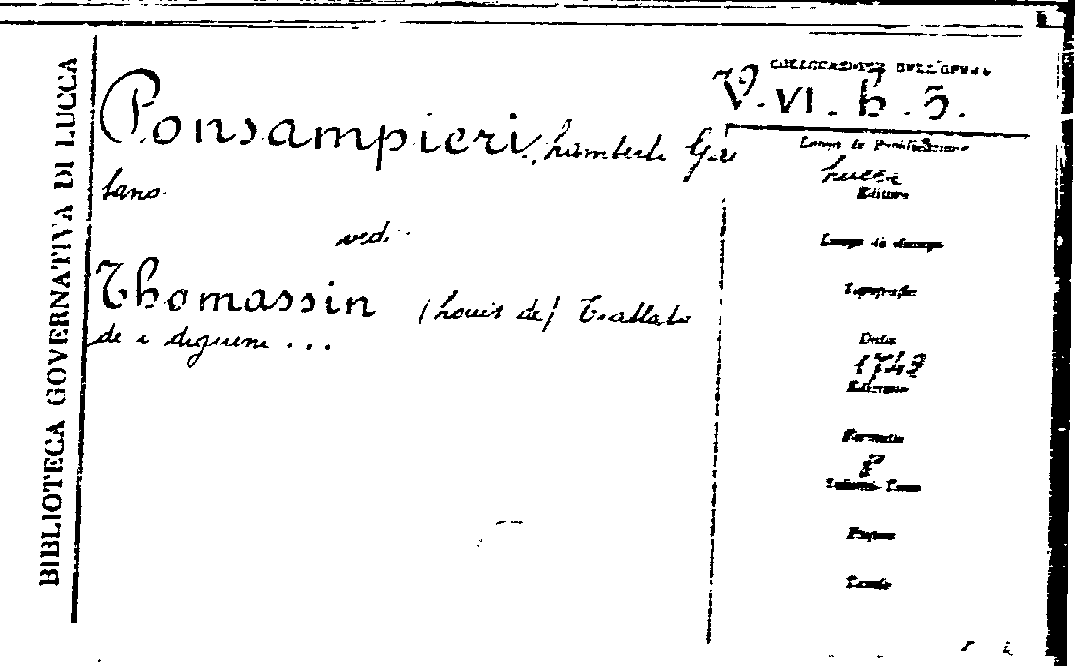 BIBLIOTECA GOVERNATIVA DI LUCCA
Ponsampieri, Lamberto Gae
tano
vedi
Thomassin (Louis de) Trattato
de i digiuni ...
COLLOCAZIONE DELL'OPERA
V. VI. b. 5.
Luogo di Pubblicazione
Lucca
Editore
Luogo di stampa
Tipografia
Data
1742
Edizione
Formato
8°
Pagine
Tavole